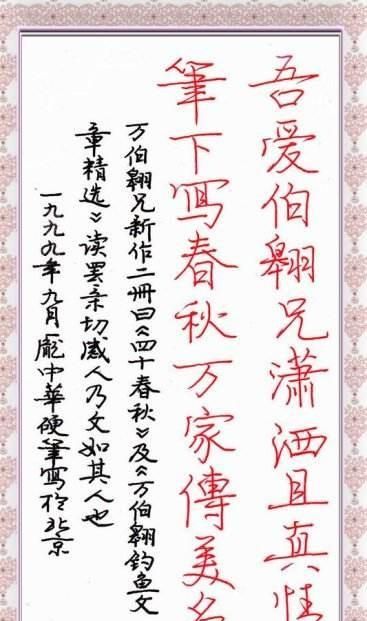 吾爱伯翱兄潇洒且真性
筆下写春秋万家傳美名
万伯翱兄新作二冊曰《四十春秋》及《万伯翱钓鱼文
章精选》读罢亲切感人乃文如其人也
一九九九年九月龐中華硬筆写於北京